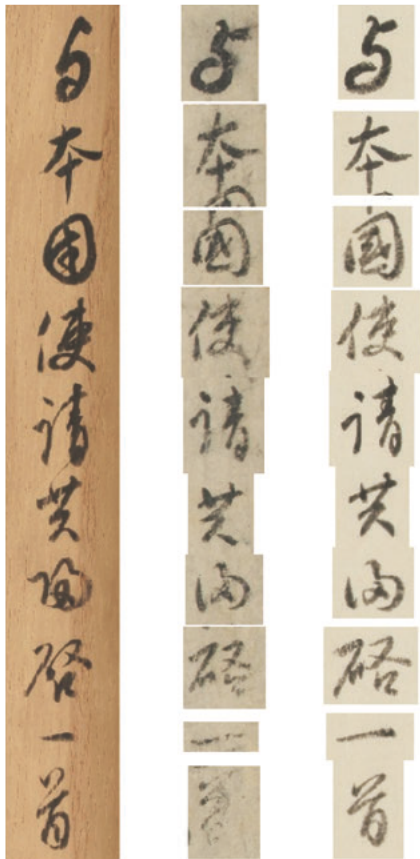 与本国使請共帰啓一首
与本國使請共帰啓一首
与本國使請共帰啓一首